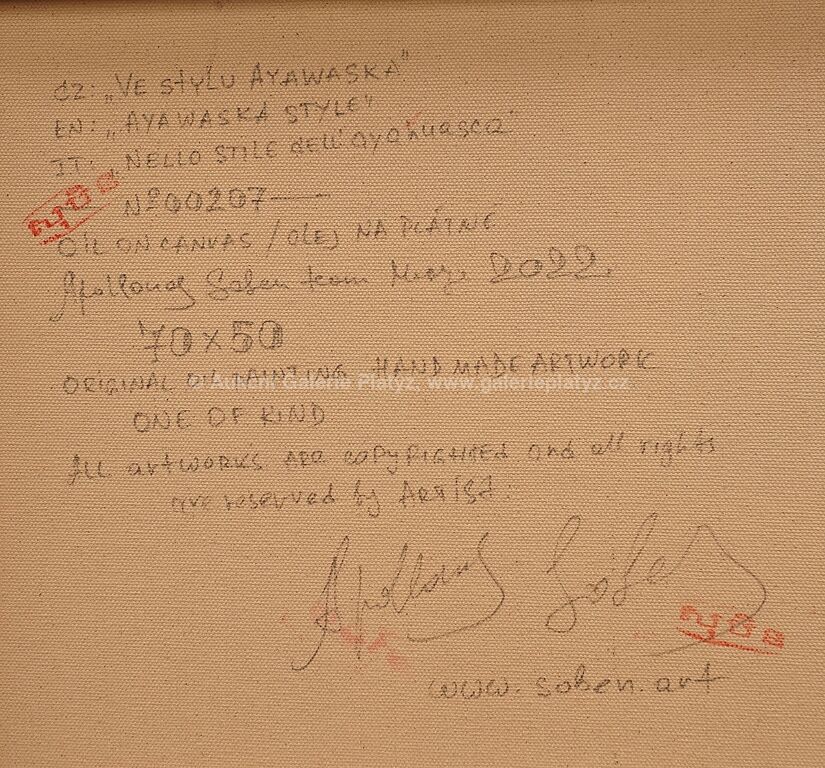 CZ: „VE STYLU AYAWASKA"
EN: „AYAWASKA STYLE"
IT: „NELLO STILE DELL'ayahuasca"
Nº 00207
OIL ON CANVAS / OLEJ NA PLÁTNĚ
Apollonas Soben team 2022
70 x 50
ORIGINAL OIL PAINTING HAND MADE ARTWORK
© Aukční Galerie Platýz, www.galerieplatyz.cz
ONE OF KIND
All artWORKS ARe COPYRIGHTED and all rights
are reserved by Artist.
Apollonas Soben
www.soben.art